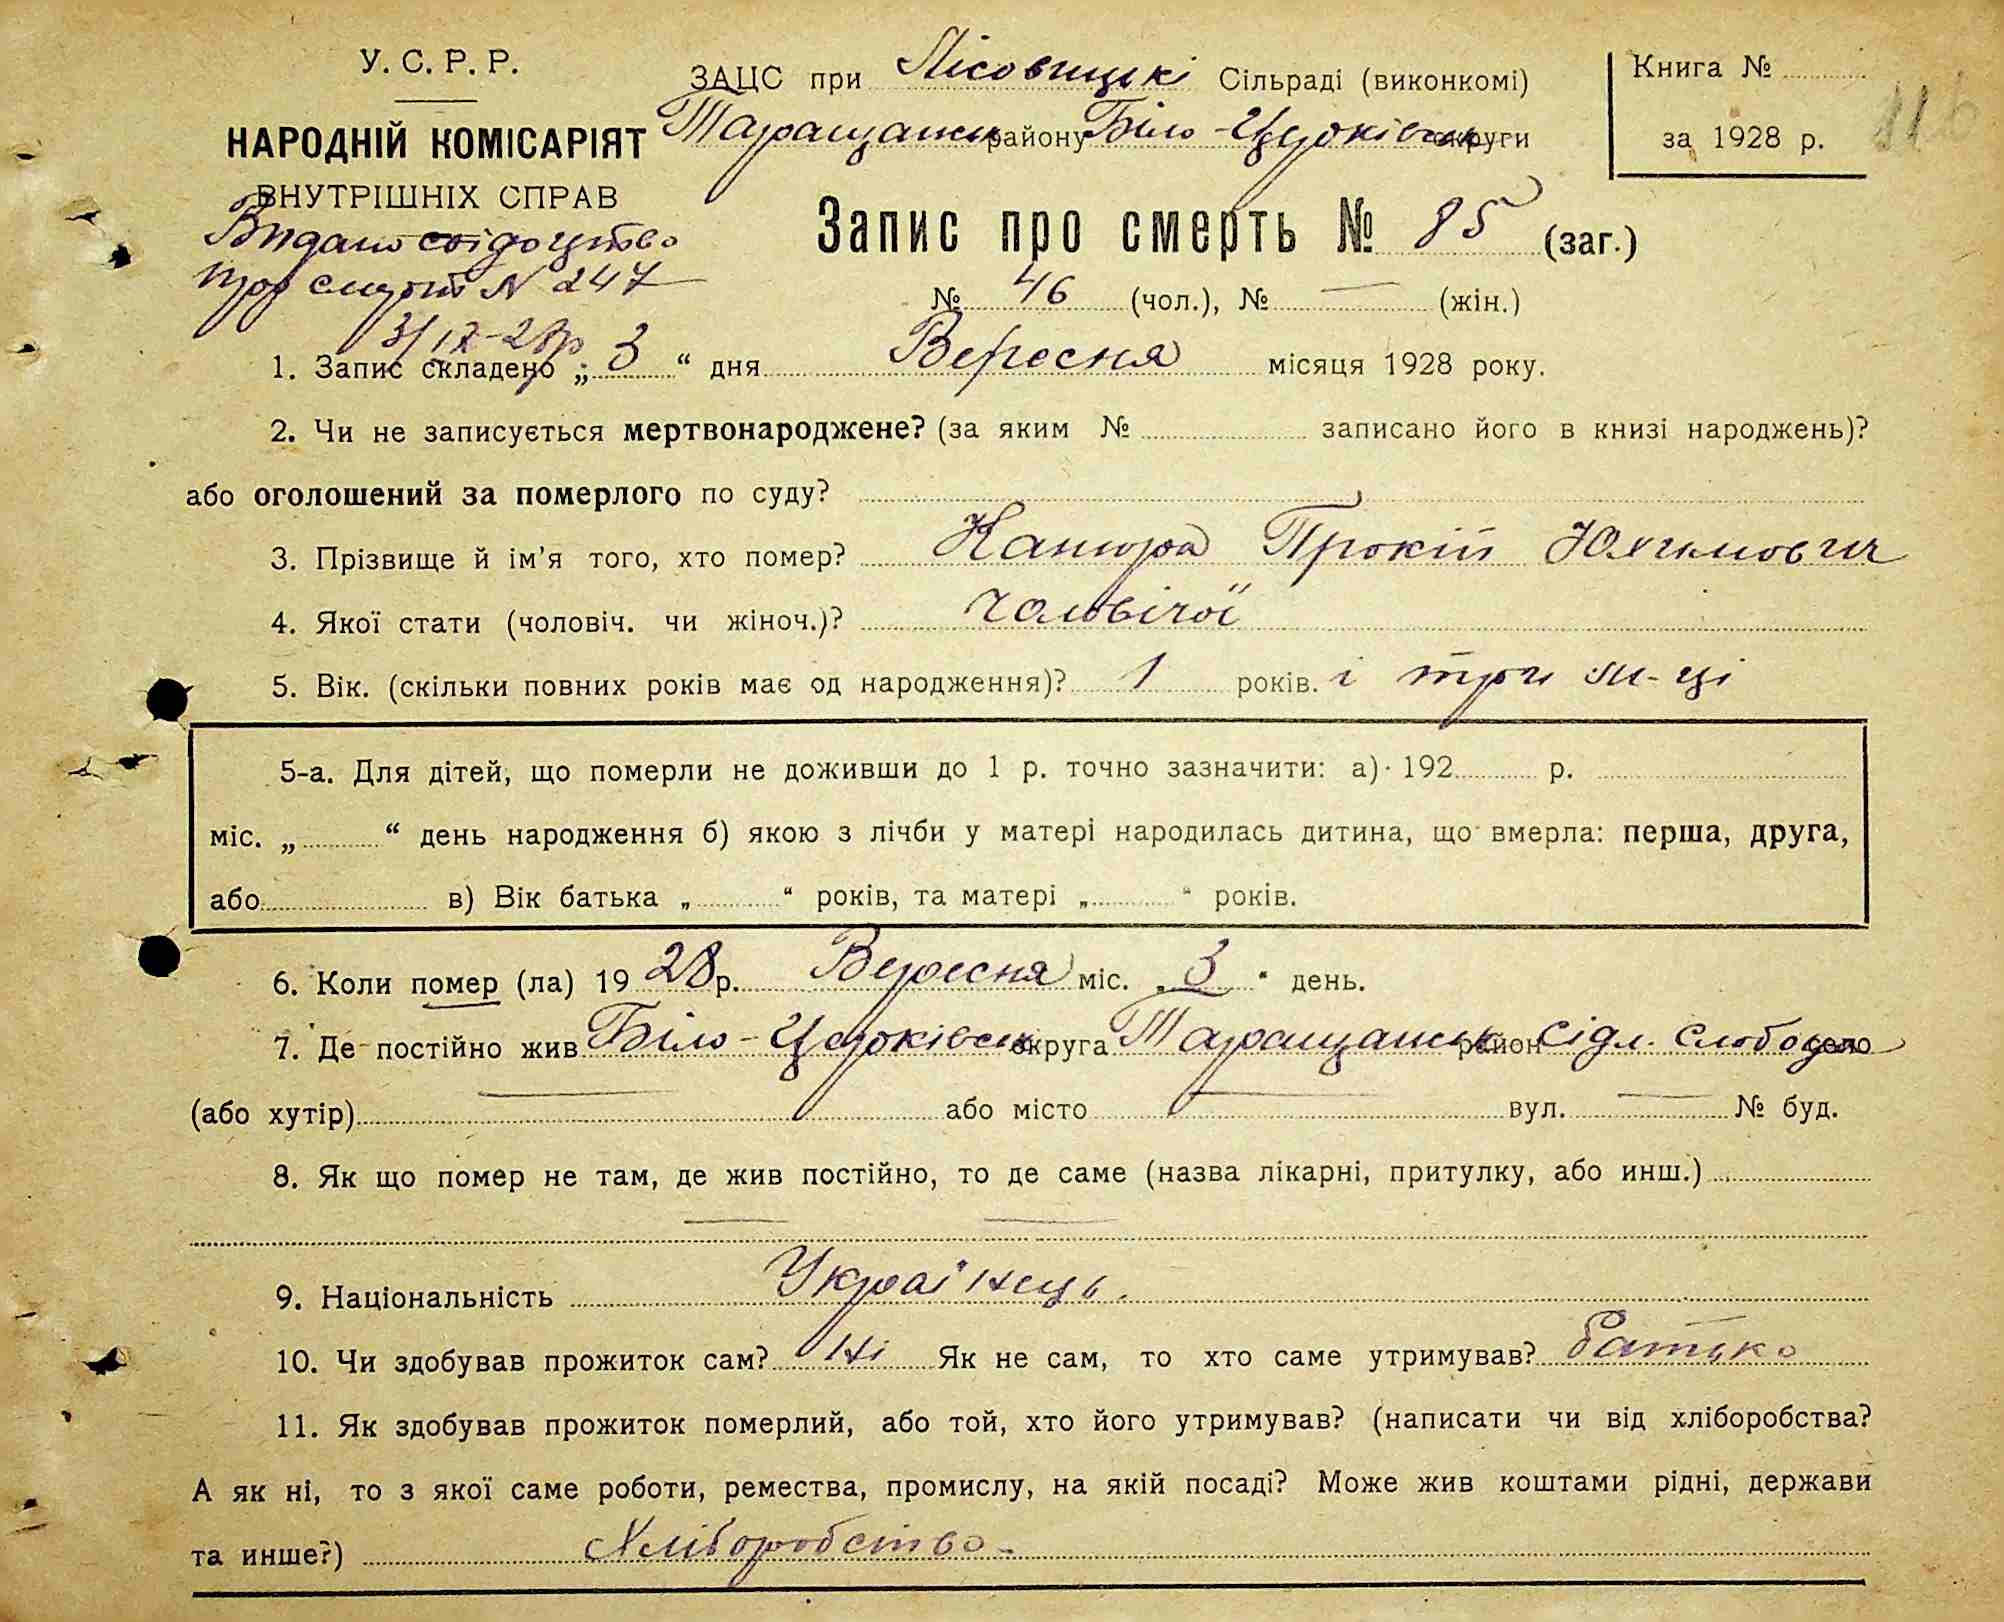 У. С. Р. Р.
НАРОДНІЙ КОМІСАРІЯТ
ВНУТРІШНІХ СПРАВ
Видано свідоцтво
про смерть N 247
3/IX-28р
ЗАЦС при Лісовицькі Сільраді (виконкомі)
Таращанськ району Біло-Церківськ округи
Книга №
за 1928 р.
Запис про смерть № 85 (заг.)
№ 46 (чол.), № — (жін.)
1. Запис складено „ 3 “ дня Вересня місяця 1928 року.
2. Чи не записується мертвонароджене? (за яким № записано його в книзі народжень)?
або оголошений за померлого по суду?
3. Прізвище й ім’я того, хто помер? Канюра Прокіп Юхимович
4. Якої стати (чоловіч. чи жіноч.)? чоловічої
5. Вік. (скільки повних років має од народження)? 1 років. і три м-ці
5-а. Для дітей, що померли не доживши до 1 р. точно зазначити: а) 192 р.
міс. „ “ день народження б) якою з лічби у матері народилась дитина, що вмерла: перша, друга,
або в) Вік батька „ “ років, та матері „ “ років.
6. Коли помер (ла) 19 28 р. Вересня міс. „ 3 “ день.
7. Де постійно жив Біло-Церківськ округа Таращанськ район Сідл. Слобода село
(або хутір) — або місто — вул. — № буд.
8. Як що помер не там, де жив постійно, то де саме (назва лікарні, притулку, або инш.)
— —
9. Національність Українець.
10. Чи здобував прожиток сам? Ні Як не сам, то хто саме утримував? батько
11. Як здобував прожиток померлий, або той, хто його утримував? (написати чи від хліборобства?
А як ні, то з якої саме роботи, ремества, промислу, на якій посаді? Може жив коштами рідні, держави
та инше?) Хліборобство